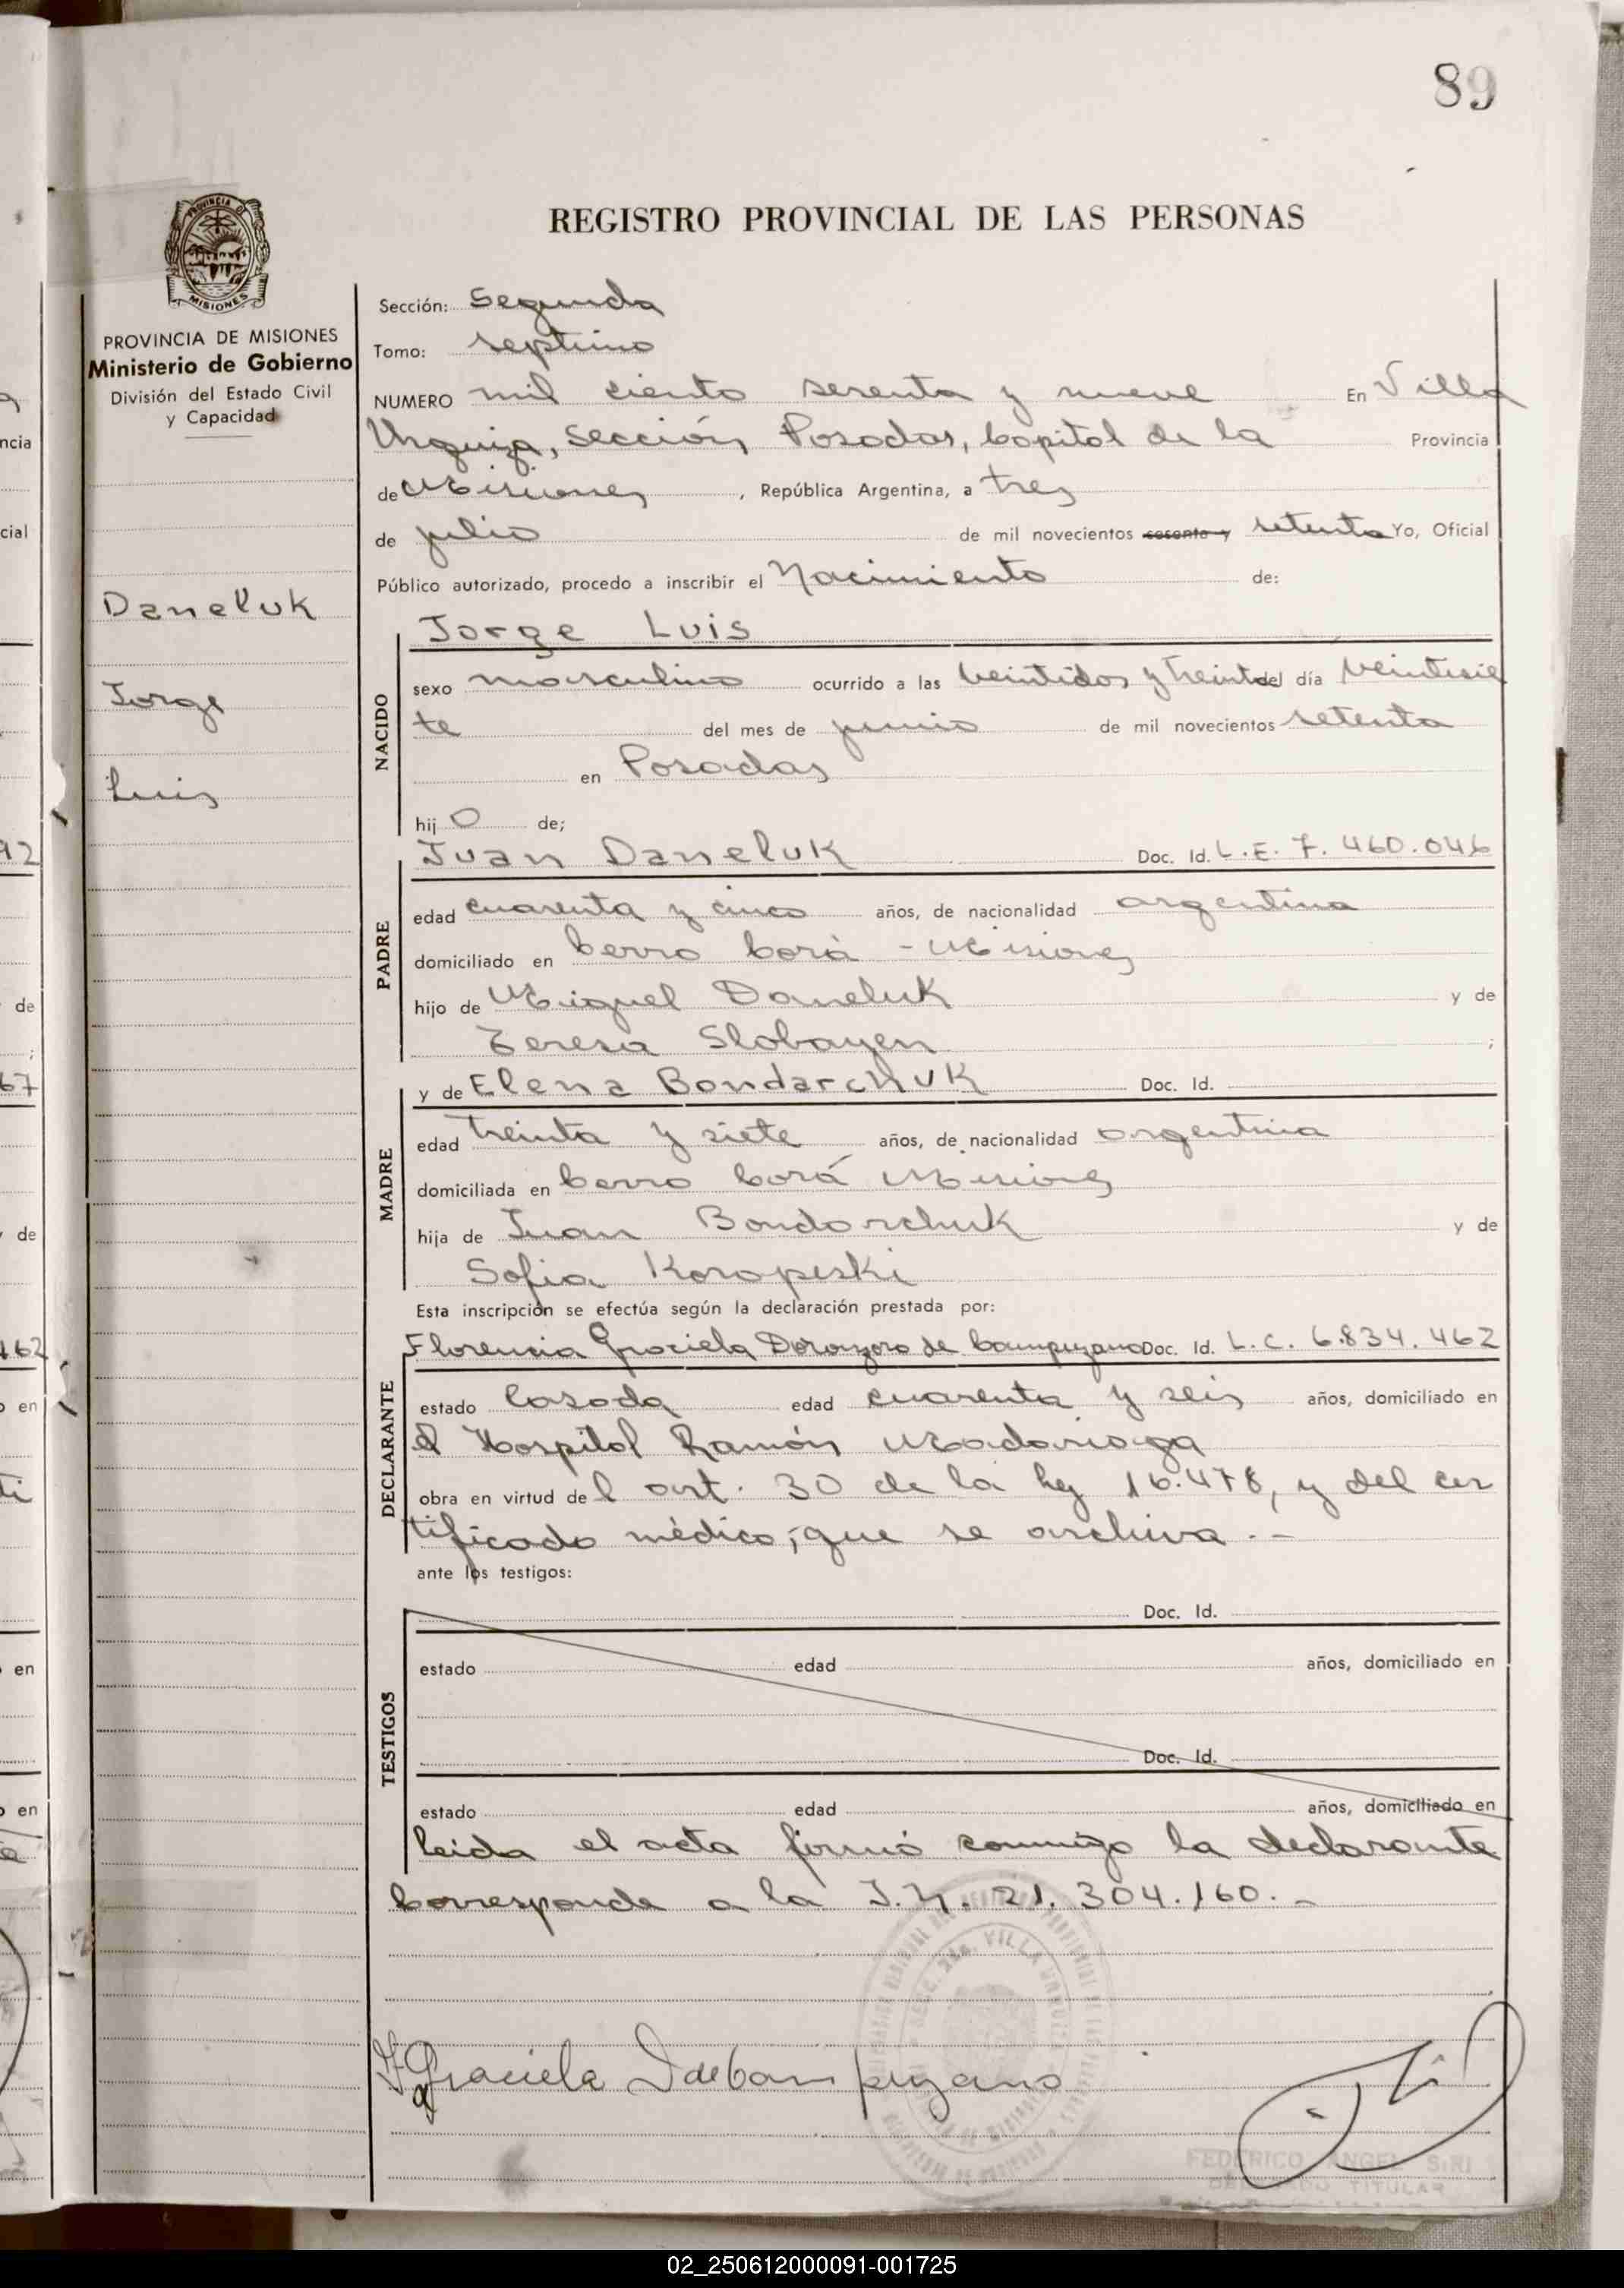 89
REGISTRO PROVINCIAL DE LAS PERSONAS
PROVINCIA DE
MISIONES
PROVINCIA DE MISIONES
Ministerio de Gobierno
División del Estado Civil
y Capacidad
Daneluk
Jorge
Luis
Sección: Segunda
Tomo: septimo
NUMERO mil ciento sesenta y nueve En Villa
Urquiza, Sección Posadas, Capital de la Provincia
de Misiones, República Argentina, a tres
de julio de mil novecientos sesenta y setenta Yo, Oficial
Público autorizado, procedo a inscribir el Nacimiento de:
Jorge Luis
NACIDO
sexo masculino ocurrido a las veintidos y treinta del día veintisie
te del mes de junio de mil novecientos setenta
en Posadas
hijo de;
Juan Daneluk Doc. Id. L.E. 7.460.046
PADRE
edad cuarenta y cinco años, de nacionalidad argentina
domiciliado en Cerro Corá - Misiones
hijo de Miguel Daneluk y de
Teresa Slobayen;
y de Elena Bondarchuk Doc. Id.
MADRE
edad treinta y siete años, de nacionalidad argentina
domiciliada en Cerro Corá Misiones
hija de Juan Bondarchuk y de
Sofia Koropeski
Esta inscripción se efectúa según la declaración prestada por:
Florencia Graciela de Campuzano Doc. Id. L.C. 6.834.462
DECLARANTE
estado Casada edad cuarenta y seis años, domiciliado en
el Hospital Ramón Madariaga
obra en virtud del art. 30 de la ley 16.478, y del cer
tificado médico, que se archiva.-
ante los testigos:
TESTIGOS
Doc. Id.
estado edad años, domiciliado en
Doc. Id.
estado edad años, domiciliado en
Leida el acta firmó conmigo la declarante
Corresponde a la I.N. 21.304.160.-
Graciela D de Campuzano
FEDERICO ANGEL SIRI
DELEGADO TITULAR
02_250612000091-001725